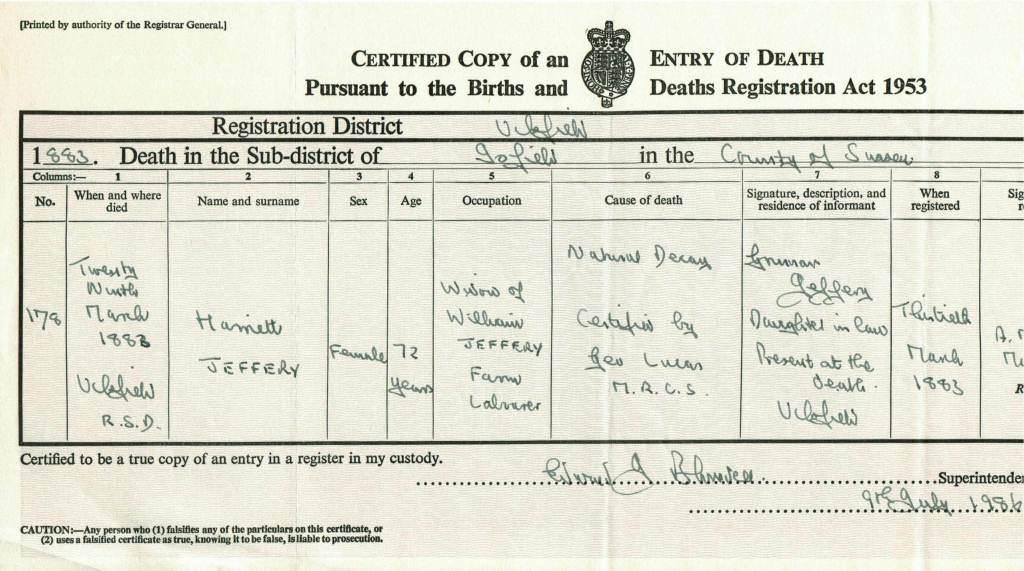 [Printed by authority of the Registrar General.]
CERTIFIED COPY of an ENTRY OF DEATH
Pursuant to the Births and Deaths Registration Act 1953
Registration District Uckfield
1883. Death in the Sub-district of in the County of Sussex
Columns:— 1 2 3 4 5 6 7 8
No.
When and where died
Name and surname
Sex
Age
Occupation
Cause of death
Signature, description, and residence of informant
When registered
Sig
r
178
Twenty
Ninth
March
1883
Uckfield
R.S.D.
Harriett
JEFFERY
Female
72
years
Widow of
William
JEFFERY
Farm
Labourer
Natural Decay
Certified by
Geo Lucas
M.R.C.S.
Jeffery
Daughter in law
Present at the
death.
Uckfield
Thirtieth
March
1883
R
Certified to be a true copy of an entry in a register in my custody.
Superintende
9th July 1986
CAUTION:—Any person who (1) falsifies any of the particulars on this certificate, or
(2) uses a falsified certificate as true, knowing it to be false, is liable to prosecution.